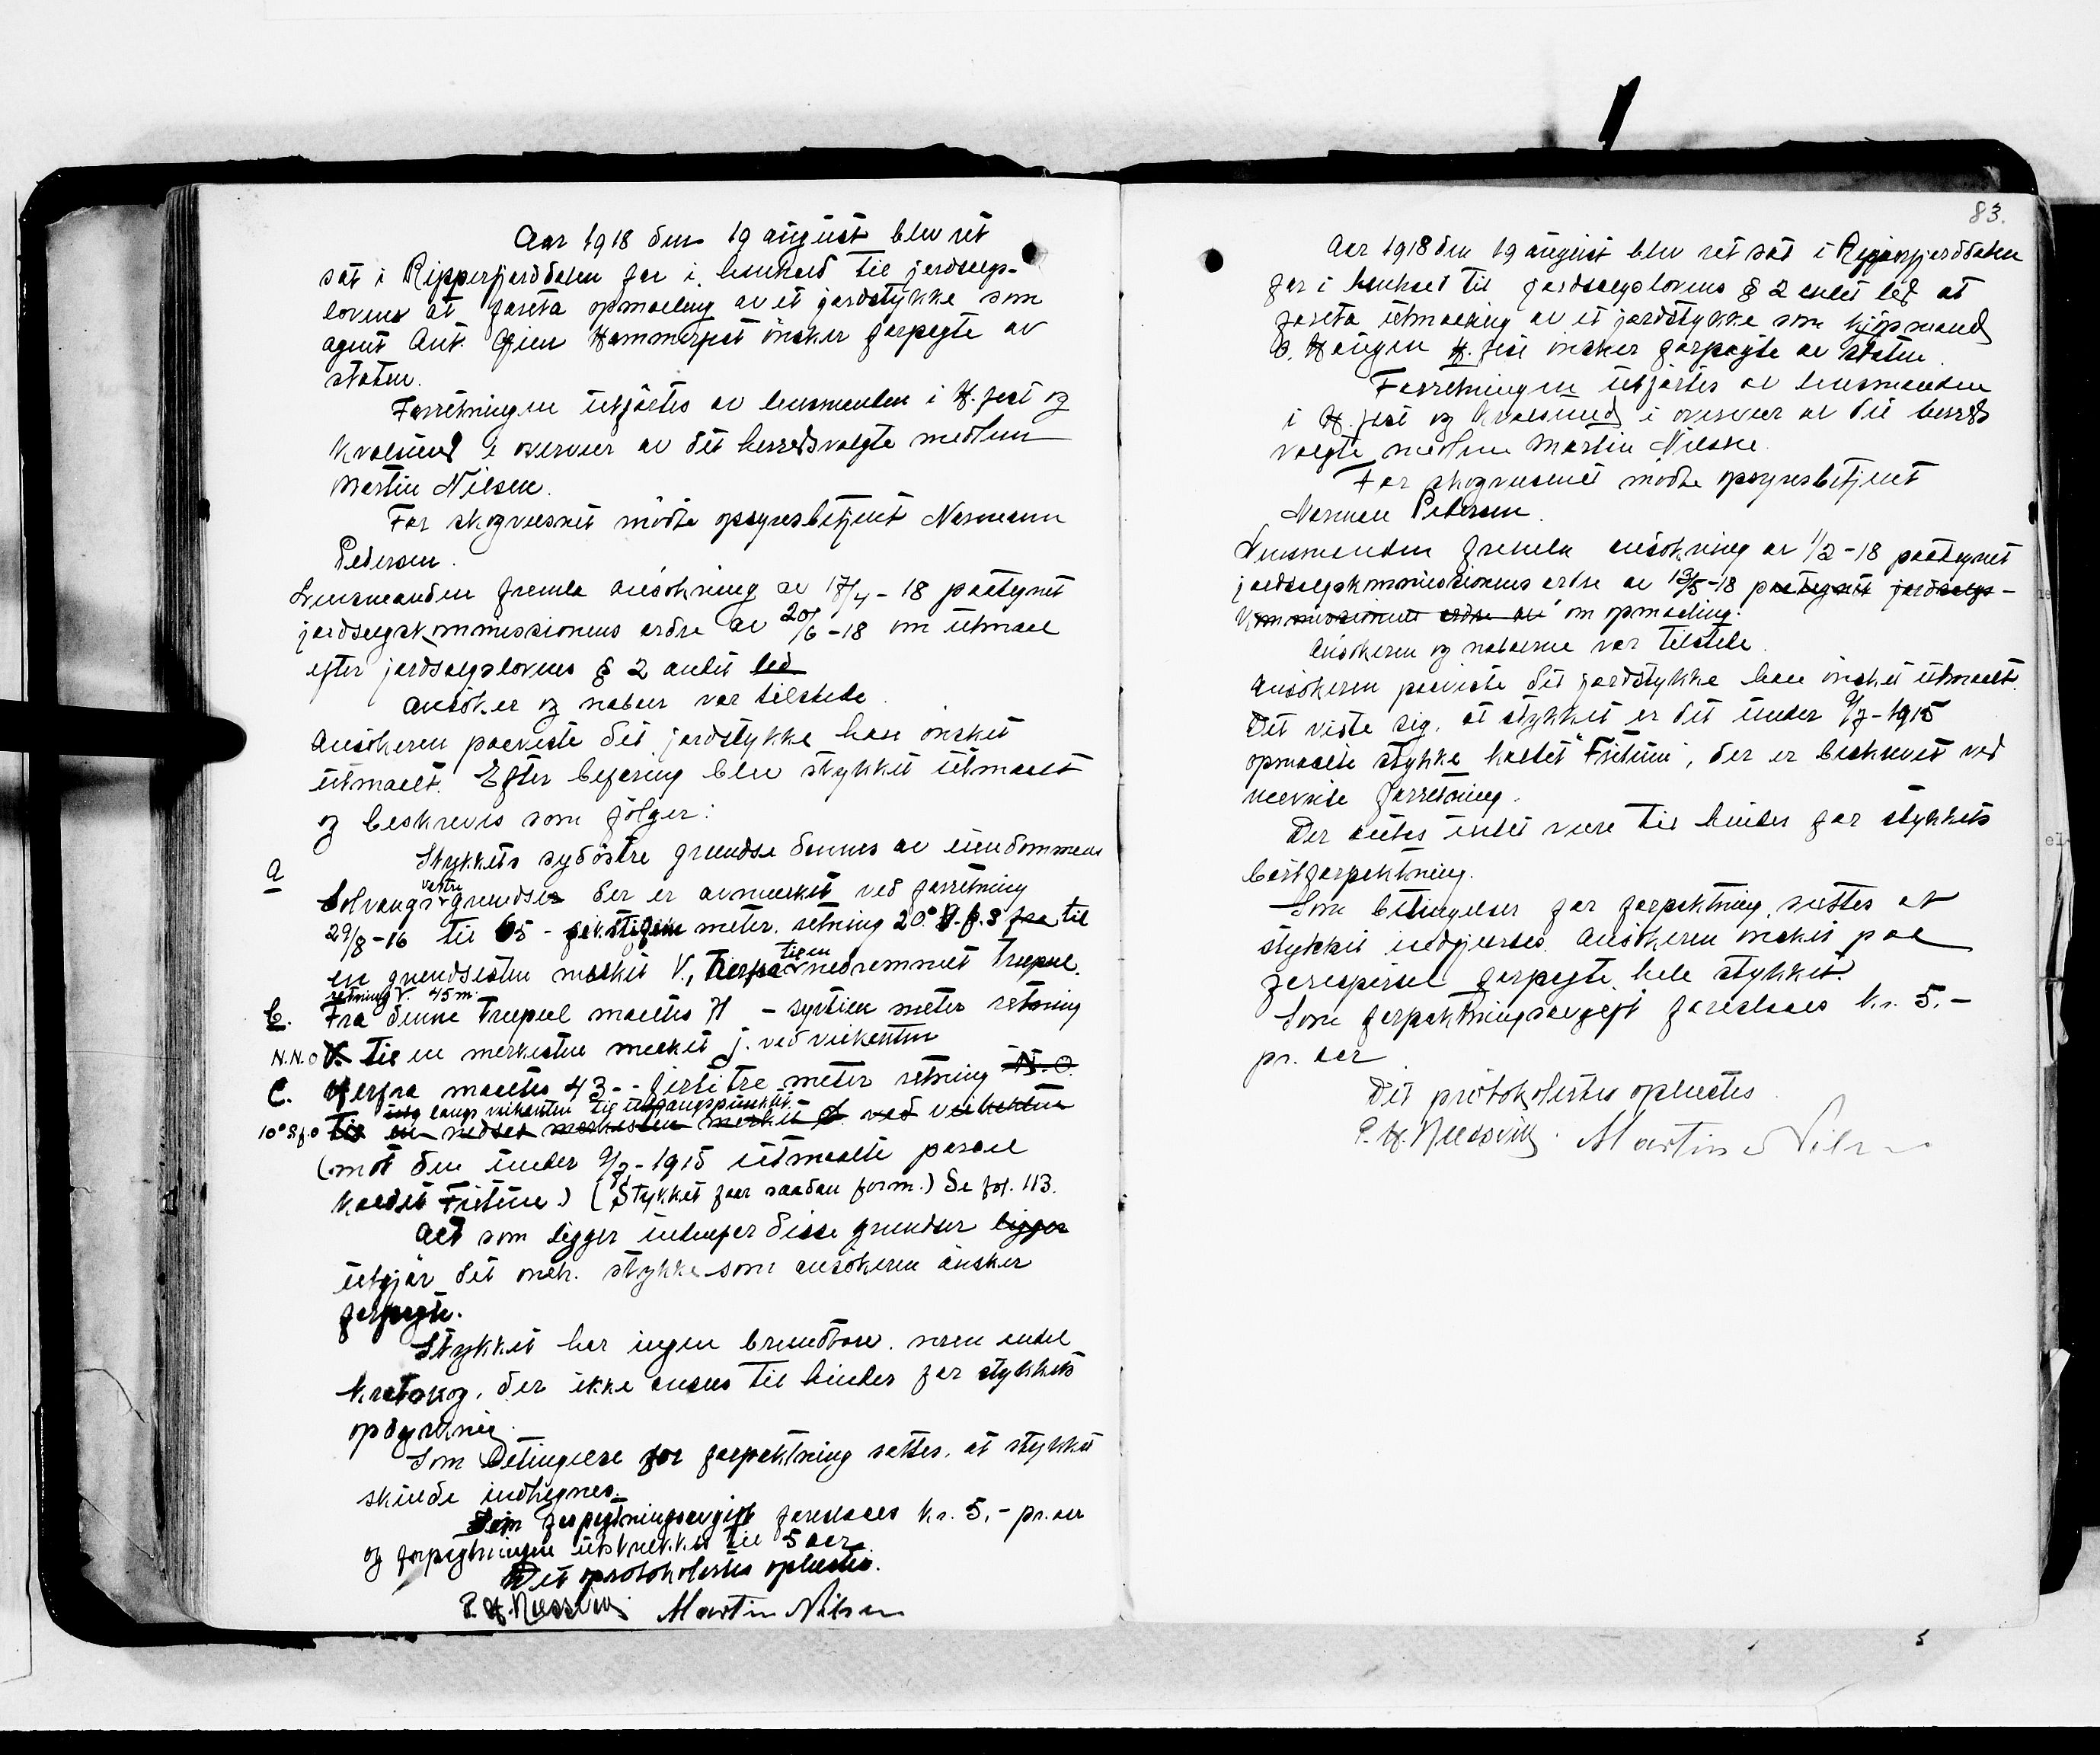 Aar 1918 den 19 august blev ret
sat i Ripperfjorddalen for i henhold til jordsalgs-
lovens at foreta opmaaling av et jordstykke som
agent Ant. Gien Hammerfest ønsker forpagte av
staten.
Forretningen utførtes av lensmanden i H.fest og
Kvalsund i overvær av det herredsvalgte medlem
Martin Nilsen.
For skogvæsenet møtte opsynsbetjent Normann
Pedersen.
Lensmanden fremla ansøkning av 17/4 - 18 paategnet
jordsalgskommissionens ordre av 20/6 - 18 om utmaal
efter jordsalgslovens § 2 andet led
Ansøker og naboer var tilstede
Ansøkeren paaviste det jordstykke han ønsket
utmaalt. Efter befaring blev stykket utmaalt
og beskreves som følger:
a
Stykkets sydøstre grændse dannes av eiendommens
Solvangs vestre grændser der er avmerket ved forretning
29/8 - 16 til 65 - seksti fem meter. retning 20° S. f. S fra til
en grændsesten merket V., Herfra til en nedrammet Træpæl.
retning V. 45 m.
b. Fra denne Træpæl maaltes 71 - sytti en meter retning
N.N.O V. til en merkesten merket j. ved veikanten
C. Herfra maaltes 43 - - firti tre meter retning N. O.
langs veikanten til utgangspunktet.
10° S.f.O til en nedsat merkesten merket d. ved veikanten
(mot den under 9/7 - 1915 utmaalte parcel
kaldet Fritun) (Stykket faar saadan form.) Se fol. 113.
Alt som ligger indenfor disse grændser ligger
utgjør det omh. stykke som ansøkeren ønsker
forpagte.
Stykket har ingen brændtorv. noen endel
kratskog, der ikke ansees til hinder for stykkets
opdyrkning.
Som Betingelse for forpaktning sættes, at stykket
skulde indhegnes.
Som forpagtningsavgift foreslaaes kr. 5,- pr. aar
og forpagtningen utstrækkes til 5 aar.
Det protokolerte oplæstes.
P. H. Martin Nilsen
83.
Aar 1918 den 19 august blev ret sat i Ripperfjorddalen
for i henhold til jordsalgslovens § 2 andet led at
foreta utmaaling av et jordstykke som kjøpmand
O. Haugen H.fest ønsker forpagte av staten.
Forretningen utførtes av lensmanden
i H.fest og Kvalsund i overvær av det herreds
valgte medlem Martin Nilsen.
For skogvæsenet møtte opsynsbetjent
Norman Pedersen.
Lensmanden fremla ansøkning av 1/2 - 18 paategnet
jordsalgskommissionens ordre av 13/5 - 18 paategnet jordsalgs-
kommissionens ordre av om opmaaling.
Ansøkeren og naboerne var tilstede.
Ansøkeren paaviste det jordstykke han ønsket utmaalt.
Det viste sig, at stykket er det under 9/7 - 1915
opmaalte stykke kaldet "Fritun", der er beskrevet ved
nævnte forretning.
Der antas intet være til hinder for stykkets
bortforpaktning.
Som betingelser for forpaktning sættes at
stykket indgjærdes. Ansøkeren ønsket paa
forespørsel forpagte hele stykket.
Som forpaktningsavgift foreslaaes kr. 5.-
pr. aar
Det protokolerte oplæstes.
P. H. Martin Nilsen